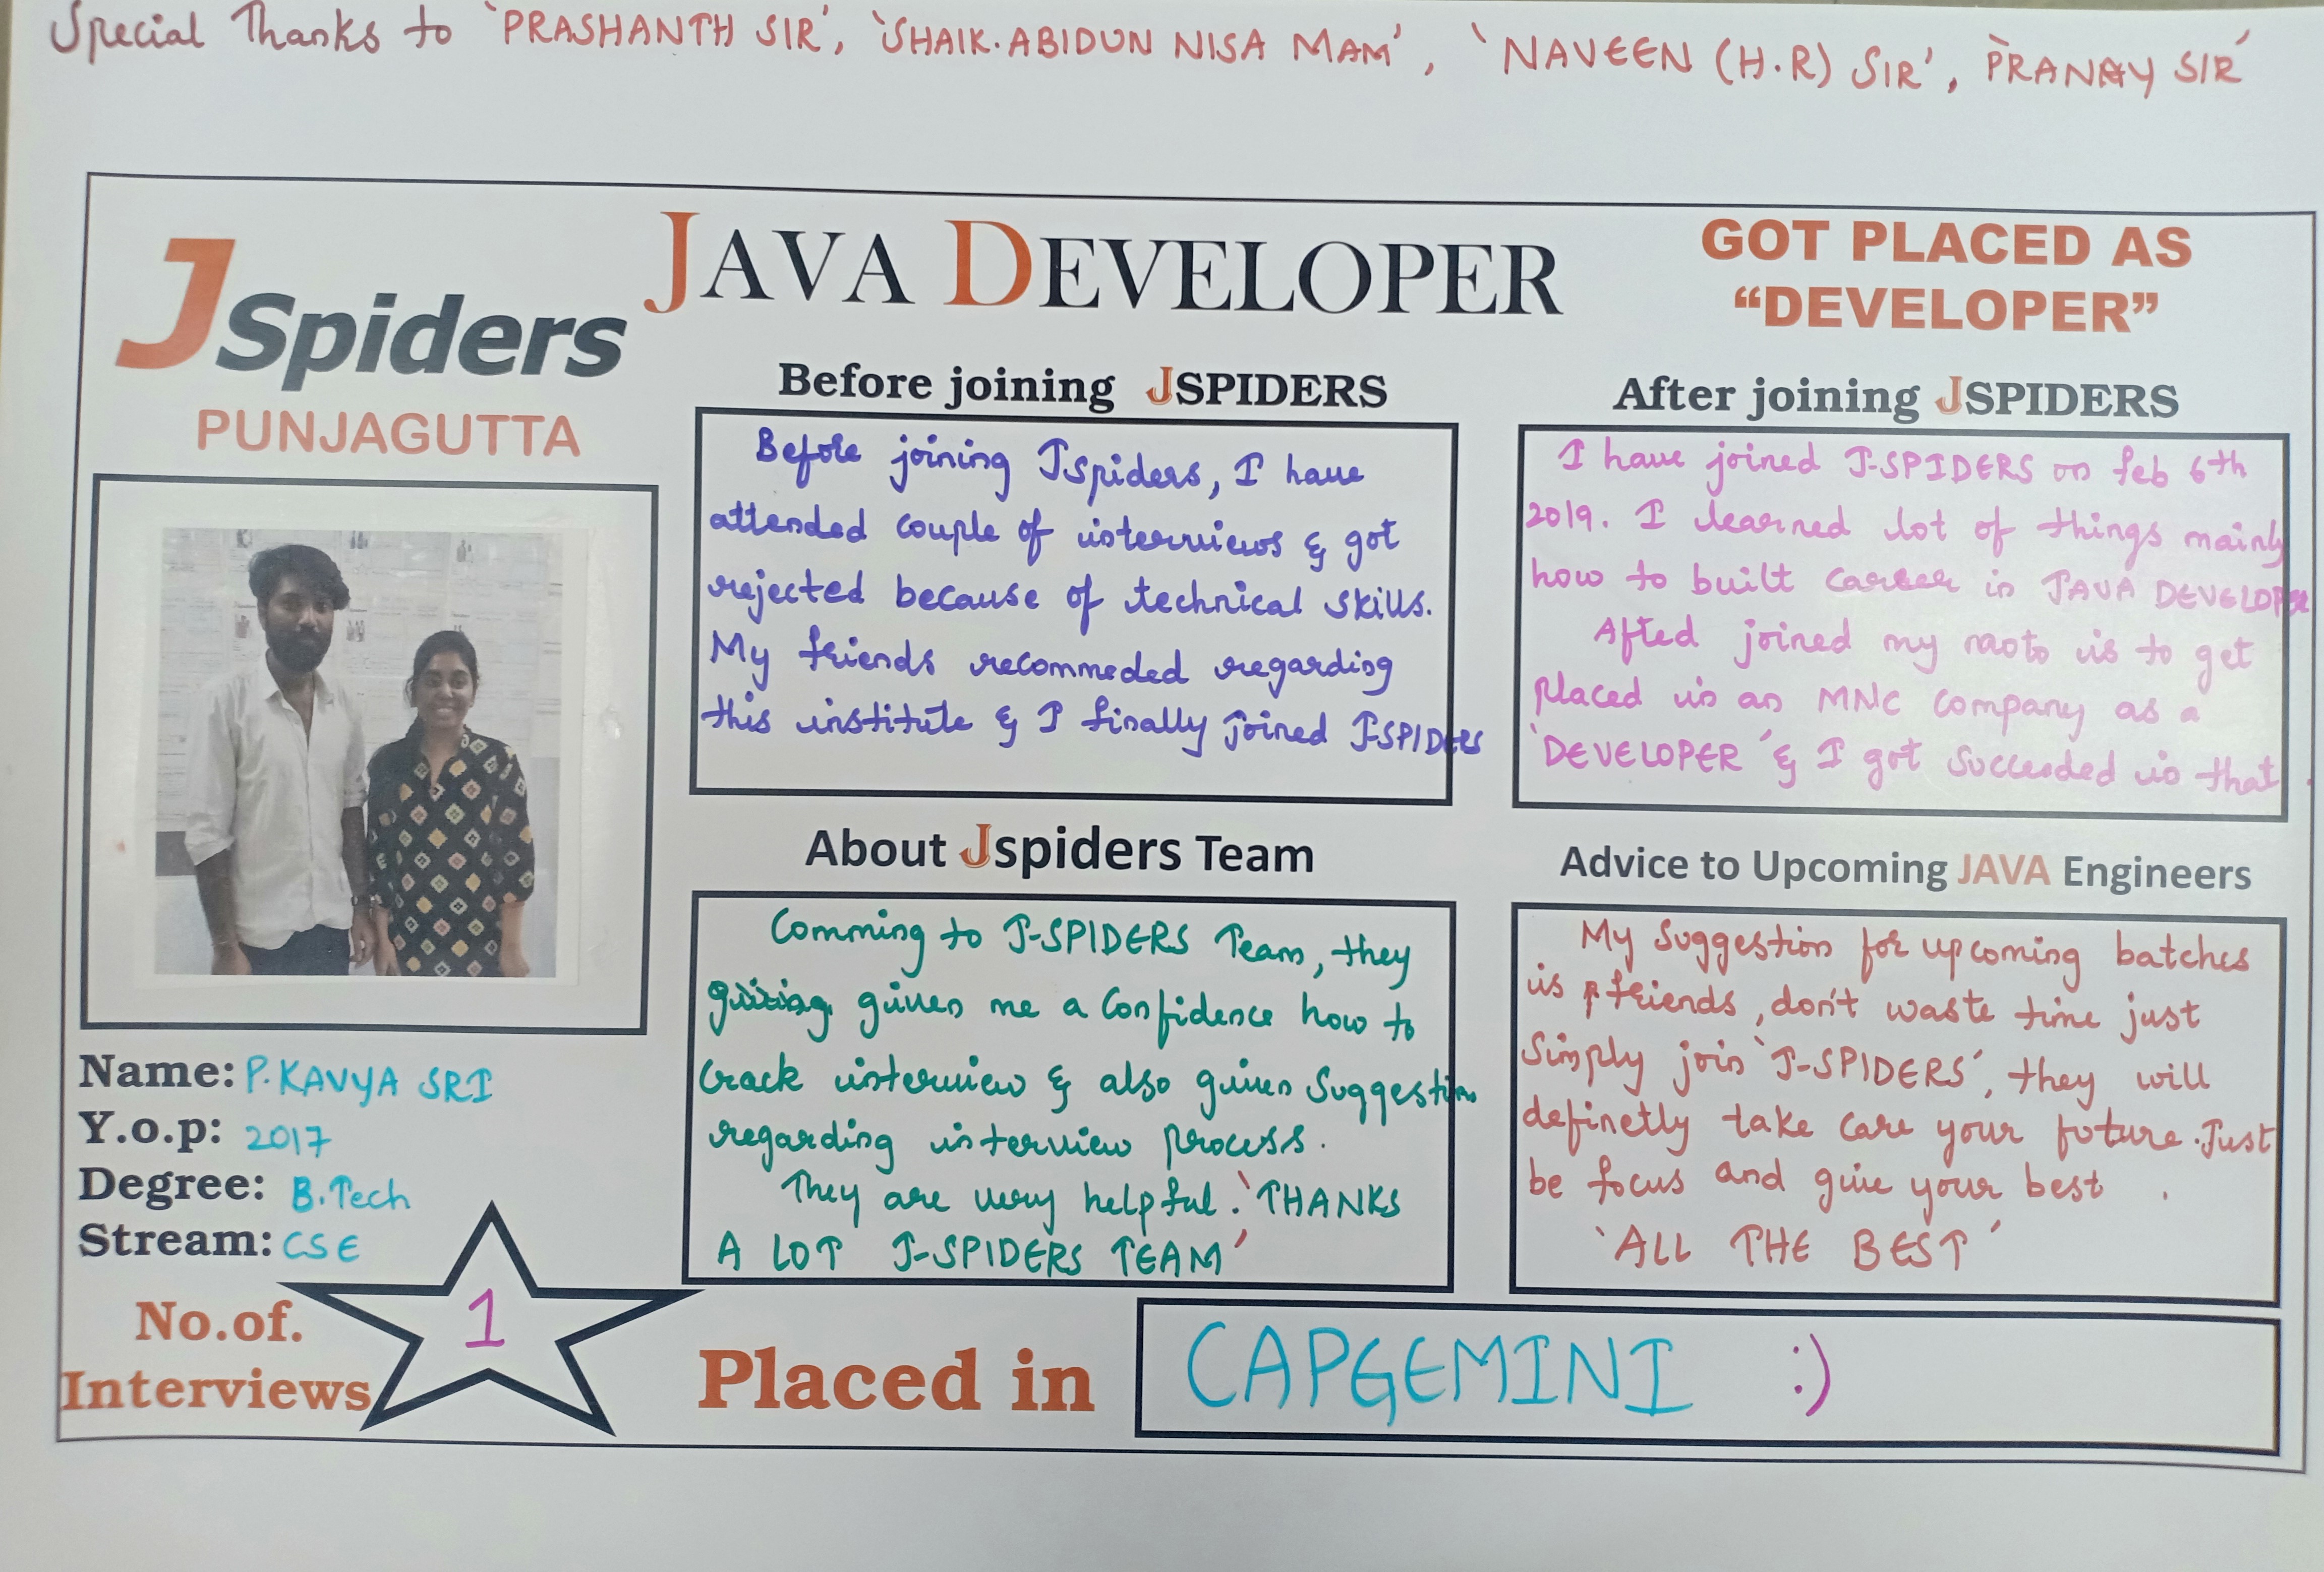 Special Thanks to 'PRASHANTH SIR', 'SHAIK.ABIDUN NISA MAM', 'NAVEEN (H.R) SIR', 'PRANAY SIR'
JSpiders
PUNJAGUTTA
JAVA DEVELOPER
GOT PLACED AS
“DEVELOPER”
Before joining JSPIDERS
Before joining Jspiders, I have
attended couple of interviews & got
rejected because of technical skills.
My friends recommeded regarding
this institute & I finally joined J-SPIDERS
After joining JSPIDERS
I have joined J-SPIDERS on feb 6th
2019. I learned lot of things mainly
how to built career in JAVA DEVELOPER
After joined my moto is to get
placed in an MNC company as a
'DEVELOPER' & I got succeeded in that.
About Jspiders Team
Comming to J-SPIDERS Team, they
given me a Confidence how to
crack interview & also given Suggestion
regarding interview process.
They are very helpful. 'THANKS
A LOT J-SPIDERS TEAM'
Advice to Upcoming JAVA Engineers
My Suggestion for upcoming batches
is friends, don't waste time just
Simply join 'J-SPIDERS', they will
definetly take care your future. Just
be focus and give your best .
'ALL THE BEST'
Name: P. KAVYA SRI
Y.o.p: 2017
Degree: B.Tech
Stream: CSE
No.of.
Interviews
1
Placed in
CAPGEMINI :)